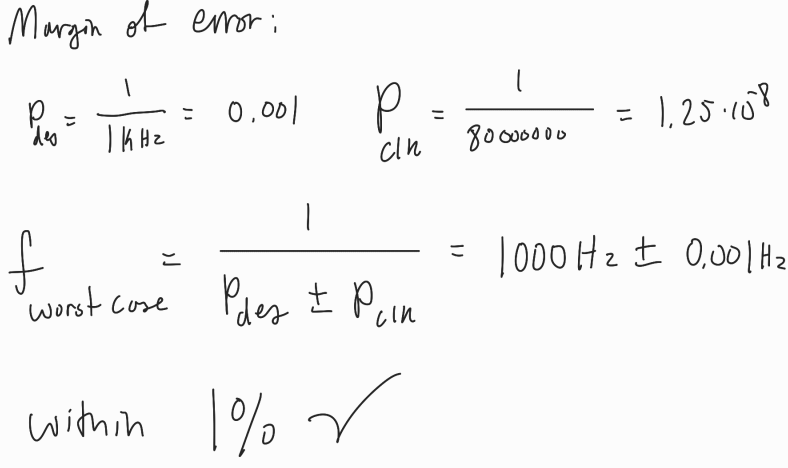 Margin of error:
P_des = 1/1kHz = 0.001 P_clk = 1/80000000 = 1.25·10^-8
f_worst case = 1/(P_des ± P_clk) = 1000Hz ± 0.001Hz
within 1% ✓